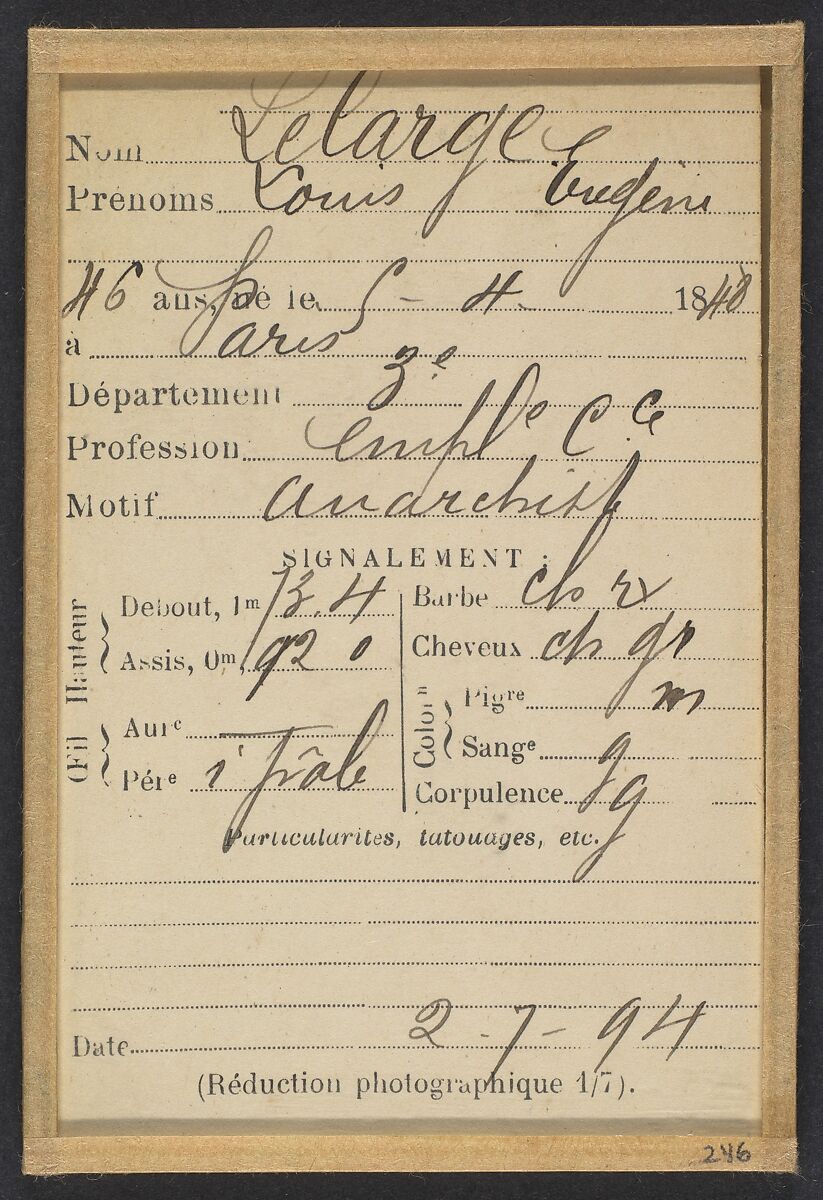 Nom Lelarge
Prénoms Louis Eugène
46 ans, né le 5 - 4 1848
à Paris
Département 3e
Profession emplé Cce
Motif anarchiste
SIGNALEMENT :
Hauteur
Debout, 1m 73.4
Assis, 0m, 92 0
(Fil
Aure —
Pére
Barbe ch
Cheveux ch gr
Colon
Pigre m
Sange g
Corpulence g
Particularités, tatouages, etc.
Date 2 - 7 - 94
(Réduction photographique 1/7).
246